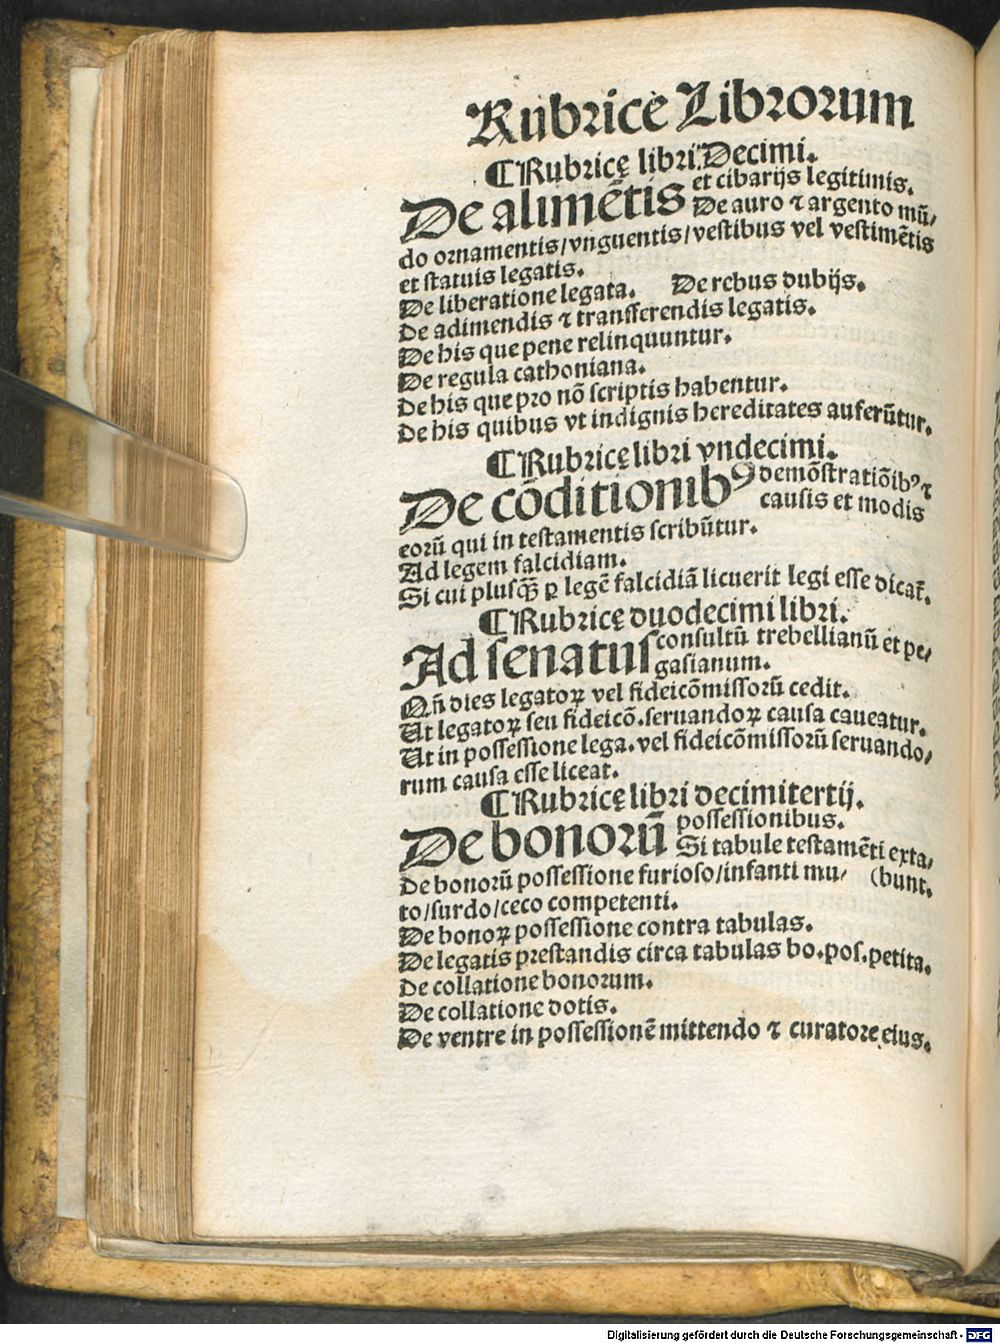 Rubrice Librorum
¶Rubricę libri Decimi.
De alimētis et cibarijs legitimis.
De auro ⁊ argento mū/
do ornamentis/vnguentis/vestibus vel vestimētis
et statuis legatis.
De liberatione legata. De rebus dubijs.
De adimendis ⁊ transferendis legatis.
De his que pene relinquuntur.
De regula cathoniana.
De his que pro nō scriptis habentur.
De his quibus vt indignis hereditates auferūtur.
¶Rubricę libri vndecimi.
De cōditionibꝰ demōstratiōibꝰ ⁊
causis et modis
eorū qui in testamentis scribūtur.
Ad legem falcidiam.
Si cui plusq̄ꝫ ꝑ legē falcidiā licuerit legi esse dicat̄.
¶Rubricę duodecimi libri.
Ad senatus consultū trebellianū et pe/
gasianum.
Qñ dies legatoꝝ vel fideicōmissorū cedit.
Ut legatoꝝ seu fideicō.seruandoꝝ causa caueatur.
Ut in possessione lega.vel fideicōmissorū seruando/
rum causa esse liceat.
¶Rubricę libri decimitertij.
De bonorū possessionibus.
Si tabule testamēti exta/
De bonorū possessione furioso/infanti mu/ (bunt.
to/surdo/ceco competenti.
De bonoꝝ possessione contra tabulas.
De legatis prestandis circa tabulas bo.pos.petita.
De collatione bonorum.
De collatione dotis.
De ventre in possessionē mittendo ⁊ curatore eius.
Digitalisierung gefördert durch die Deutsche Forschungsgemeinschaft - DFG